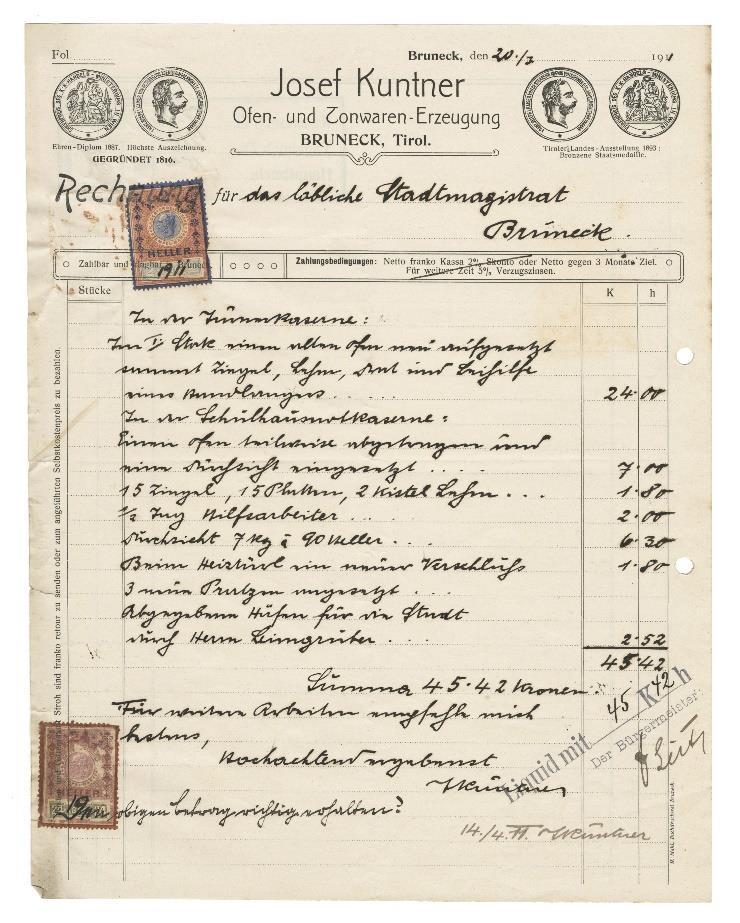 Fol.
Bruneck, den 20./3 1911
Josef Kuntner
Ofen- und Tonwaren-Erzeugung
BRUNECK, Tirol.
Ehren-Diplom 1887. Höchste Auszeichnung.
GEGRÜNDET 1816.
Tiroler Landes-Ausstellung 1893:
Bronzene Staatsmedaille.
Rechnung für das löbliche Stadtmagistrat
Bruneck.
HELLER
1911
Zahlbar und
Zahlungsbedingungen: Netto franko Kassa 2% Skonto oder Netto gegen 3 Monate Ziel.
Für weitere Zeit 5% Verzugszinsen.
Stücke K h
In der Innerkaserne:
Im I. Stok einen alten Ofen neu aufgesetzt
sammt Ziegel, Lehm, und Beihilfe
eines Handlangers . . . . . 24·00
In der Schulhausnotkaserne:
Einen Ofen teilweise abgetragen und
eine Durchsicht eingesetzt . . . . 7·00
15 Ziegel, 15 Platten, 2 Kistel Lehm . . . 1·80
1/2 Tag Hilfsarbeiter . . . . 2·00
Durchsicht 7 Kg à 90 Heller . . . 6·30
Beim Heiztürl ein neuer Verschluß 1·80
3 neue Pratzen angesetzt . . .
Abgegebene Häfen für die Stadt
durch Herrn Leimgruber . . . 2·52
45·42
Summa 45·42 Kronen
Liquid mit 45 K 42 h
Der Bürgermeister:
Für weitere Arbeiten empfehle mich
bestens,
Hochachtend ergebenst
JKuntner
HELLER
Den obigen betrag richtig erhalten?
14./4. 11. JKuntner
Stroh sind franko retour zu senden oder zum angeführten Selbstkostenpreis zu bezahlen.